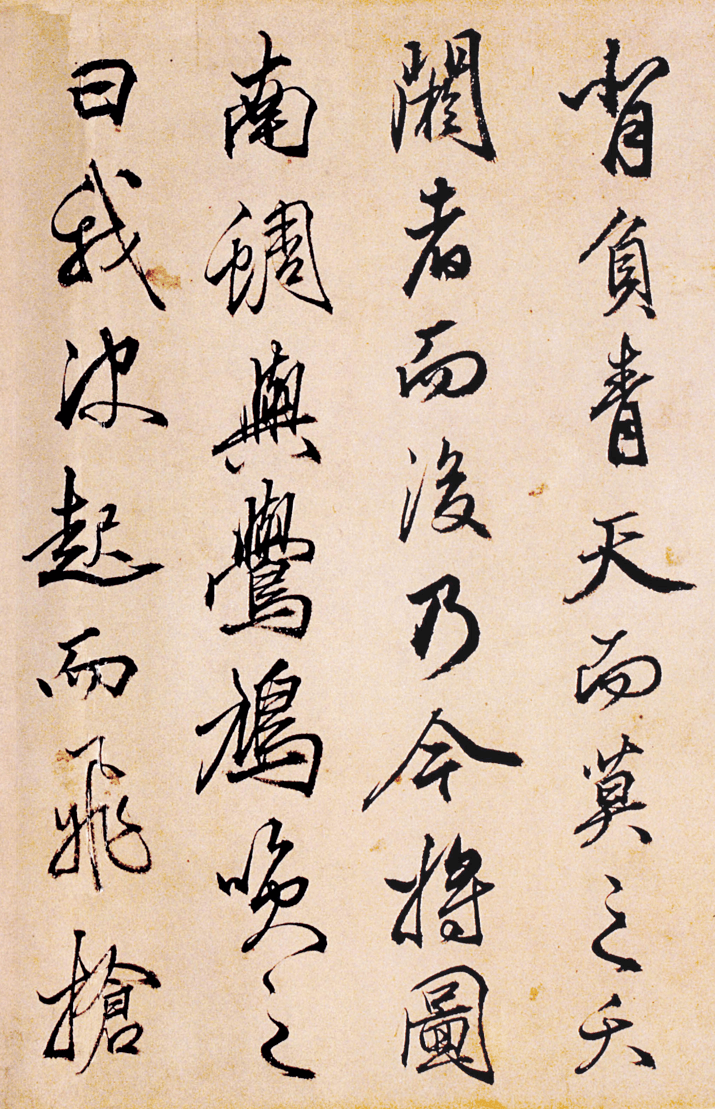 背負青天而莫之夭
閼者而後乃今將圖
南蜩與鷽鳩笑之
曰我決起而飛搶